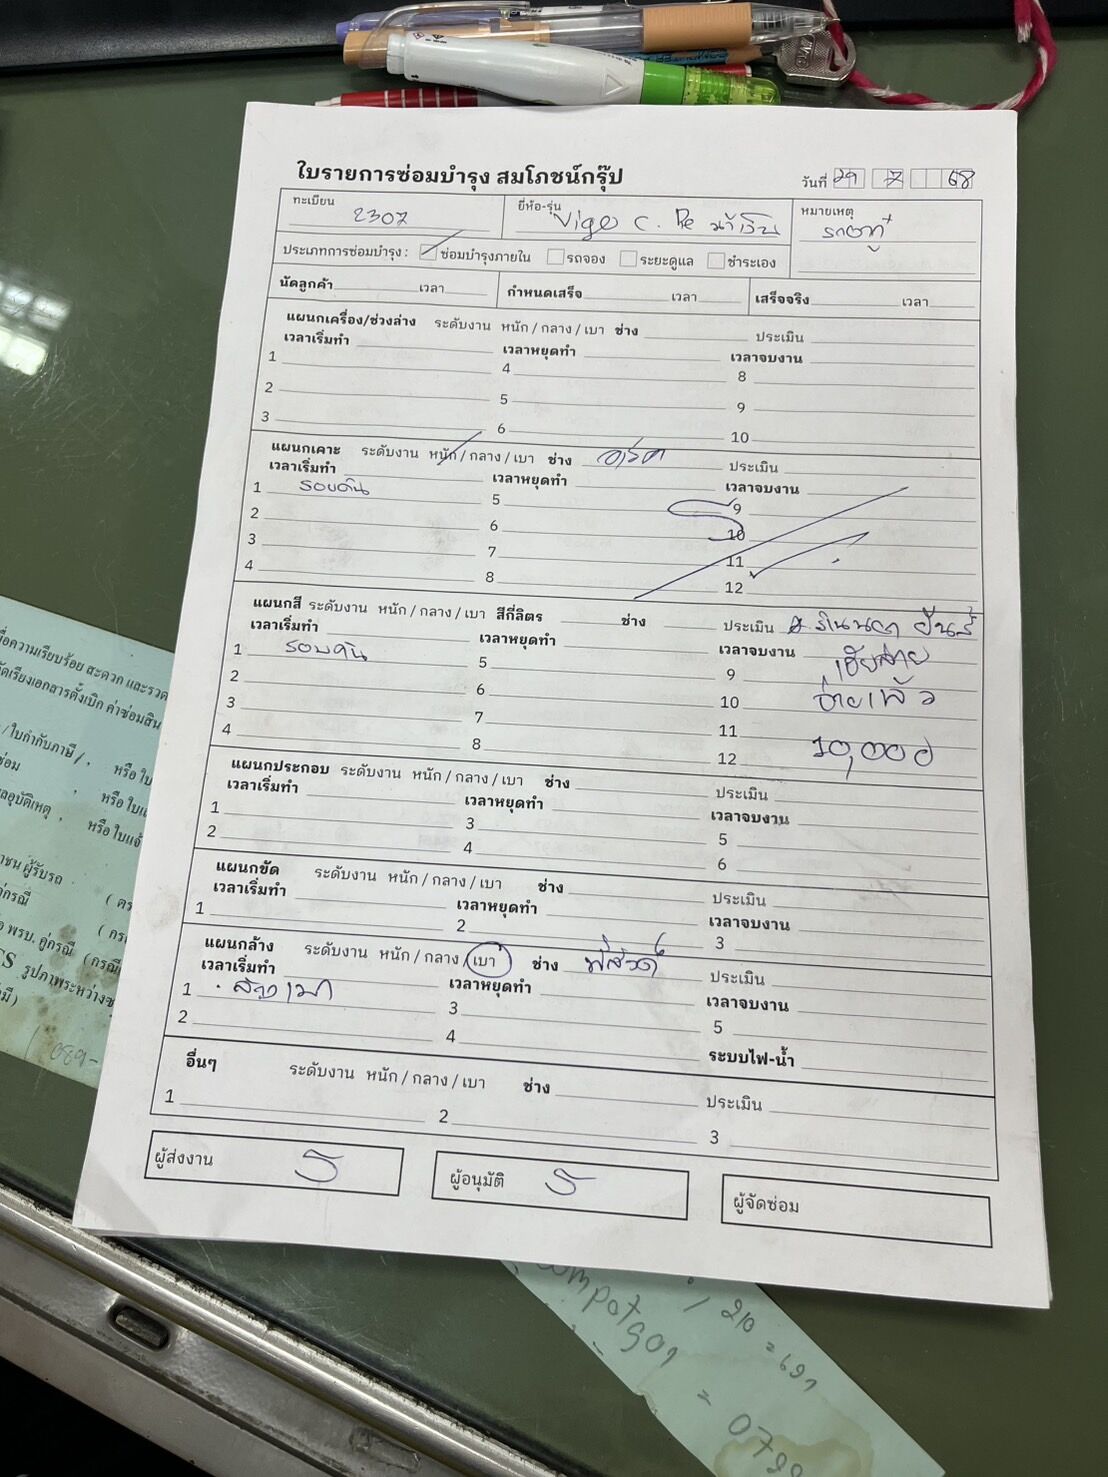 ใบรายการซ่อมบำรุง สมโภชน์กรุ๊ป
วันที่ 29 7 68
ทะเบียน 2307
ยี่ห้อ-รุ่น Vigo C.
หมายเหตุ
ประเภทการซ่อมบำรุง : ซ่อมบำรุงภายใน รถจอง ระยะดูแล ชำระเอง
นัดลูกค้า เวลา กำหนดเสร็จ เวลา เสร็จจริง เวลา
แผนกเครื่อง/ช่วงล่าง ระดับงาน หนัก / กลาง / เบา ช่าง ประเมิน
เวลาเริ่มทำ เวลาหยุดทำ เวลาจบงาน
1 4 8
2 5 9
3 6 10
แผนกเคาะ ระดับงาน หนัก / กลาง / เบา ช่าง ประเมิน
เวลาเริ่มทำ เวลาหยุดทำ เวลาจบงาน
1 รอบคัน 5 9
2 6 10
3 7 11
4 8 12
แผนกสี ระดับงาน หนัก / กลาง / เบา สีกี่ลิตร ช่าง ประเมิน
เวลาเริ่มทำ เวลาหยุดทำ เวลาจบงาน
1 รอบคัน 5 9
2 6 10 จ่ายแล้ว
3 7 11
4 8 12 10,000
แผนกประกอบ ระดับงาน หนัก / กลาง / เบา ช่าง ประเมิน
เวลาเริ่มทำ เวลาหยุดทำ เวลาจบงาน
1 3 5
2 4 6
แผนกขัด ระดับงาน หนัก / กลาง / เบา ช่าง ประเมิน
เวลาเริ่มทำ เวลาหยุดทำ เวลาจบงาน
1 2 3
แผนกล้าง ระดับงาน หนัก / กลาง / เบา ช่าง ประเมิน
เวลาเริ่มทำ เวลาหยุดทำ เวลาจบงาน
1 ล้างเบา 3 5
2 4 ระบบไฟ-น้ำ
อื่นๆ ระดับงาน หนัก / กลาง / เบา ช่าง ประเมิน
1 2 3
ผู้ส่งงาน ผู้อนุมัติ ผู้จัดซ่อม
ความเรียบร้อย สะดวก และรวด
จัดเรียงเอกสารตั้งเบิก ค่าซ่อมสิน
/ใบกำกับภาษี / , หรือ ใบ
ซ่อม , หรือ ใบ
อุบัติเหตุ , หรือ ใบแจ้
ผู้รับรถ
พรบ. คู่กรณี
210 = 697
= 0789